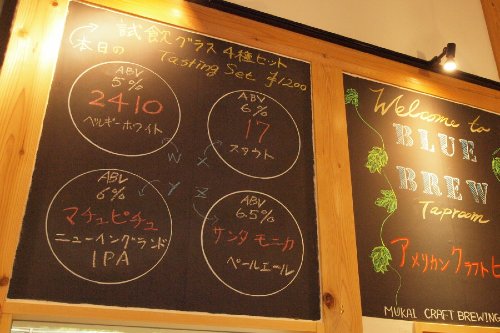 本日の 試飲グラス4種セット
Tasting Set ¥1200
ABV
5%
2410
ベルギーホワイト
W
ABV
6%
17
スタウト
X
ABV
6%
マチュピチュ
ニューイングランド
IPA
Y
ABV
6.5%
サンタモニカ
ペールエール
Z
Welcome to
BLUE
BREW
Taproom
アメリカンクラフトビ
MUKAI CRAFT BREWING